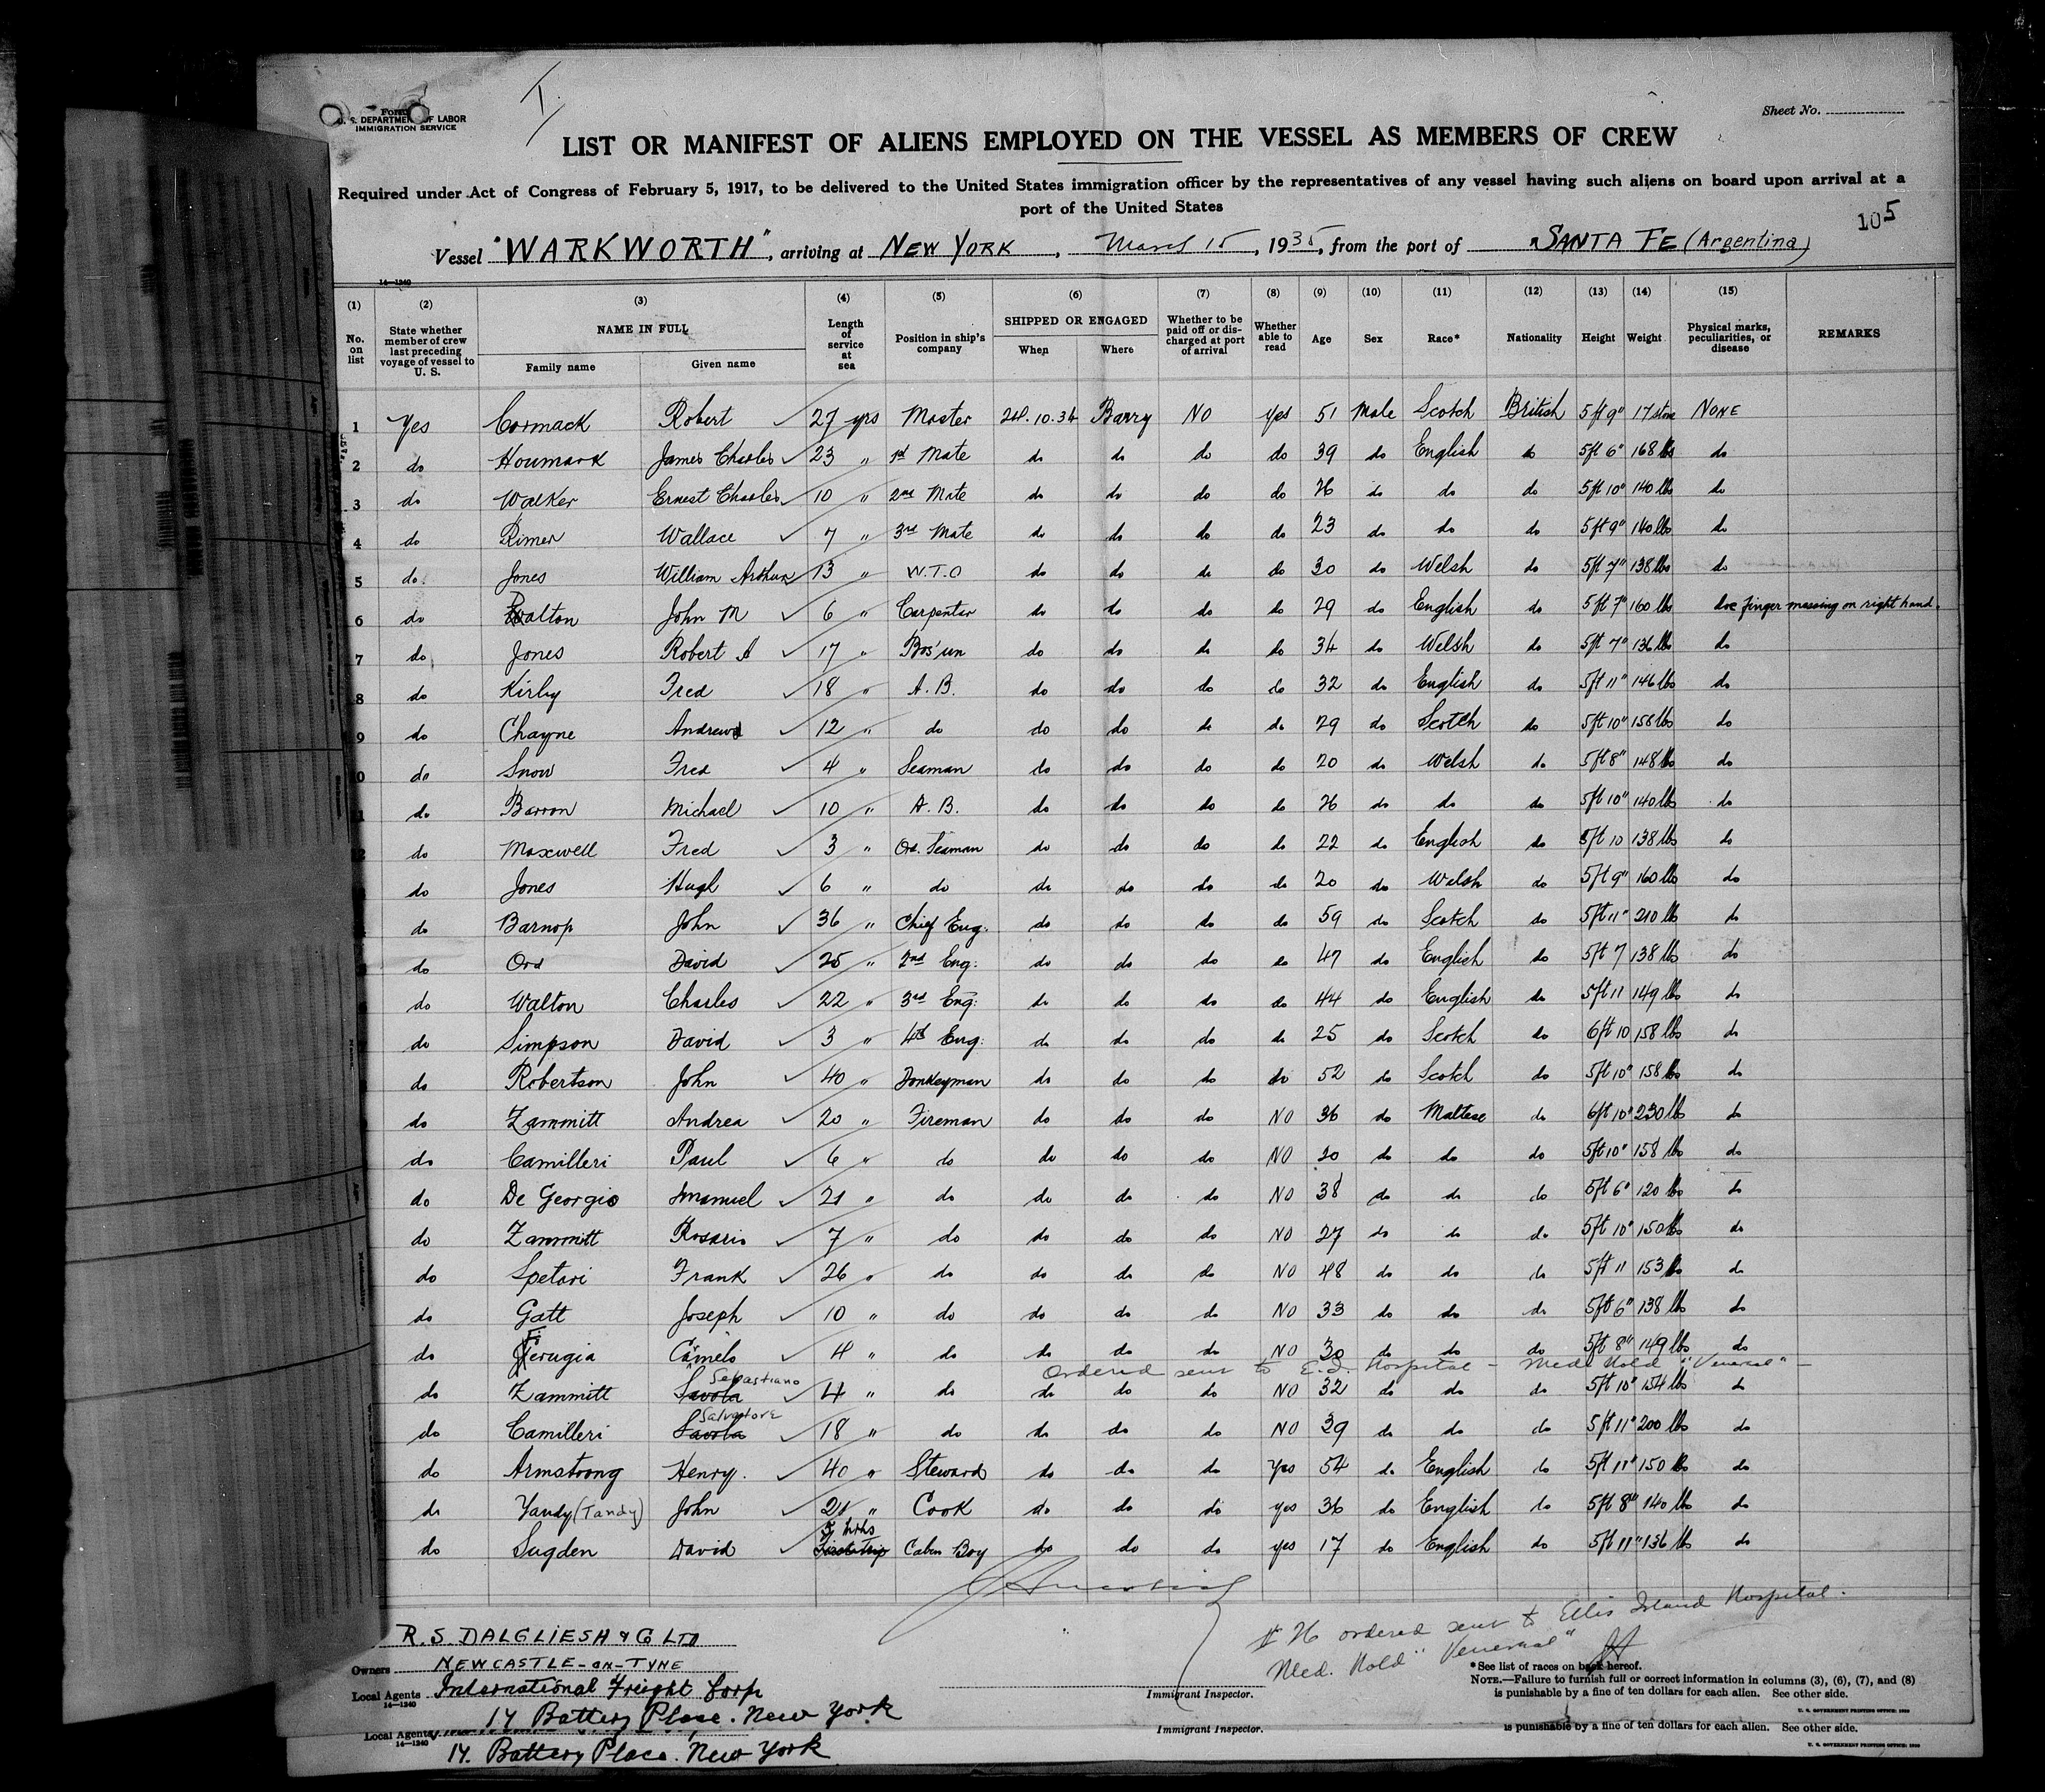 I
Form
U. S. DEPARTMENT OF LABOR
IMMIGRATION SERVICE
Sheet No.
LIST OR MANIFEST OF ALIENS EMPLOYED ON THE VESSEL AS MEMBERS OF CREW
Required under Act of Congress of February 5, 1917, to be delivered to the United States immigration officer by the representatives of any vessel having such aliens on board upon arrival at a
port of the United States
105
Vessel "WARKWORTH", arriving at NEW YORK, March 15, 1935, from the port of SANTA FE (Argentina)
14—1240
(1) (2) (3) (4) (5) (6) (7) (8) (9) (10) (11) (12) (13) (14) (15)
No. on list State whether member of crew last preceding voyage of vessel to U. S. NAME IN FULL Family name Given name Length of service at sea Position in ship's company SHIPPED OR ENGAGED When Where Whether to be paid off or discharged at port of arrival Whether able to read Age Sex Race* Nationality Height Weight Physical marks, peculiarities, or disease REMARKS
1 Yes Cormack Robert 27 yrs Master 24.10.34 Barry NO yes 51 Male Scotch British 5ft 9" 17 stone NONE
2 do Houmark James Charles 23 " 1st Mate do do do do 39 do English do 5ft 6" 168 lbs do
3 do Walker Ernest Charles 10 " 2nd Mate do do do do 26 do do do 5ft 10" 140 lbs do
4 do Rimer Wallace 7 " 3rd Mate do do do do 23 do do do 5ft 9" 140 lbs do
5 do. Jones William Arthur 13 " W.T.O do do do do 30 do Welsh do 5ft 7" 138 lbs do
6 do Dalton John M 6 " Carpenter do do do do 29 do English do 5ft 7" 160 lbs finger missing on right hand.
7 do Jones Robert A 17 " Bos'un do do do do 34 do Welsh do 5ft 7" 136 lbs do
8 do Kirby Fred 18 " A.B. do do do do 32 do English do 5ft 11" 146 lbs do
9 do Chayne Andrew 12 " do do do do do 29 do Scotch do 5ft 10" 156 lbs do
0 do Snow Fred 4 " Seaman do do do do 20 do Welsh do 5ft 8" 148 lbs do
1 do Barron Michael 10 " A.B. do do do do 26 do do do 5ft 10" 140 lbs do
2 do Maxwell Fred 3 " Ord. Seaman do do do do 22 do English do 5ft 10 138 lbs do
do Jones Hugh 6 " do do do do do 20 do Welsh do 5ft 9" 160 lbs do
do Barnop John 36 " Chief Eng. do do do do 59 do Scotch do 5ft 11" 210 lbs do
do Ord David 25 " 2nd Eng. do do do do 47 do English do 5ft 7 138 lbs do
do Walton Charles 22 " 3rd Eng. do do do do 44 do English do 5ft 11 149 lbs do
do Simpson David 3 " 4th Eng. do do do do 25 do Scotch do 6ft 10 158 lbs do
do Robertson John 40 " Donkeyman do do do do 52 do Scotch do 5ft 10" 158 lbs do
do Zammitt Andrea 20 " Fireman do do do NO 36 do Maltese do 6ft 10" 230 lbs do
do Camilleri Paul 6 " do do do do NO 20 do do do 5ft 10" 158 lbs do
do De Georgio Imanuel 21 " do do do do NO 38 do do do 5ft 6" 120 lbs do
do Zammitt Rosario 7 " do do do do NO 27 do do do 5ft 10" 150 lbs do
do Spetari Frank 26 " do do do do NO 48 do do do 5ft 11 153 lbs do
do Gatt Joseph 10 " do do do do NO 33 do do do 5ft 6" 138 lbs do
do Ferugia Camelo 4 " do do do do NO 30 do do do 5ft 8" 149 lbs do
Ordered sent to E.I. Hospital - Med. Hold "Veneral" -
do Zammitt Savola Sebastiano 4 " do do do do NO 32 do do do 5ft 10" 154 lbs do
do Camilleri Savola Salvatore 18 " do do do do NO 39 do do do 5ft 11" 200 lbs do
do Armstrong Henry. 40 " Steward do do do Yes 54 do English do 5ft 11" 150 lbs do
do Yandy (Tandy) John 21 " Cook do do do yes 36 do English do 5ft 8" 140 lbs do
do Sugden David First trip 5 mths Cabin Boy do do do yes 17 do English do 5ft 11" 136 lbs do
# 26 ordered sent to Ellis Island Hospital.
Med. Hold "Veneral"
R.S DALGLIESH & Co LTD
Owners NEWCASTLE-ON-TYNE
Local Agents International Freight Corp
14—1240
17 Battery Place. New York
Immigrant Inspector.
*See list of races on back hereof.
NOTE.—Failure to furnish full or correct information in columns (3), (6), (7), and (8)
is punishable by a fine of ten dollars for each alien. See other side.
U. S. GOVERNMENT PRINTING OFFICE
Local Agents
14—1240
17. Battery Place. New York
Immigrant Inspector.
is punishable by a fine of ten dollars for each alien. See other side.
U. S. GOVERNMENT PRINTING OFFICE